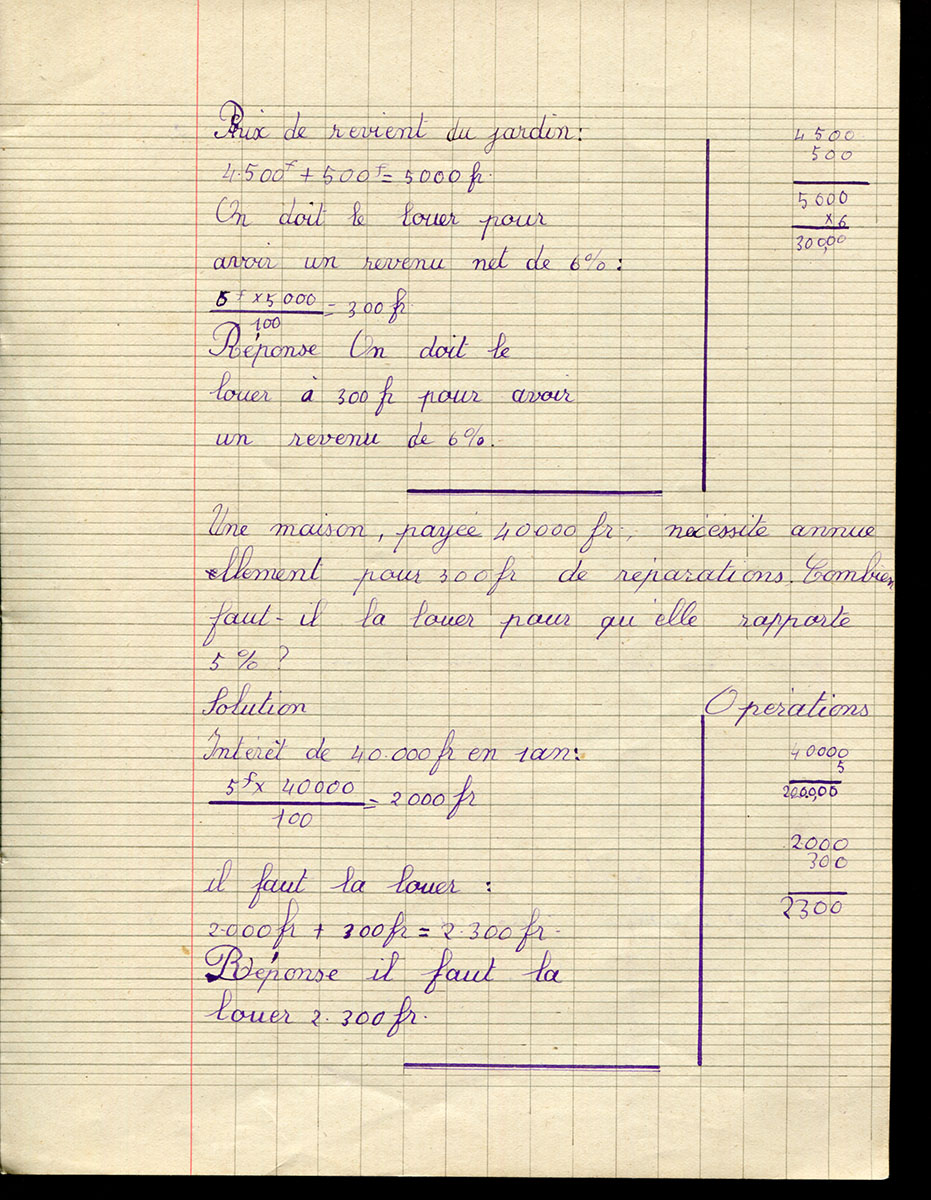 Prix de revient du jardin:
4.500f + 500f = 5000 fr.
On doit le louer pour
avoir un revenu net de 6%:
6f × 5000
100
= 300 fr
Réponse On doit le
louer à 300 fr pour avoir
un revenu de 6%.
4500
500
5000
×6
300,00
Une maison, payée 40000 fr, nécessite annue
ellement pour 300 fr de réparations. Combien
faut-il la louer pour qu'elle rapporte
5 % ?
Solution
Intérêt de 40.000 fr en 1 an:
5f × 40000
100
= 2000 fr
il faut la louer :
2.000 fr + 300 fr = 2.300 fr.
Réponse il faut la
louer 2.300 fr.
Opérations
40000
5
2000,00
2000
300
2300